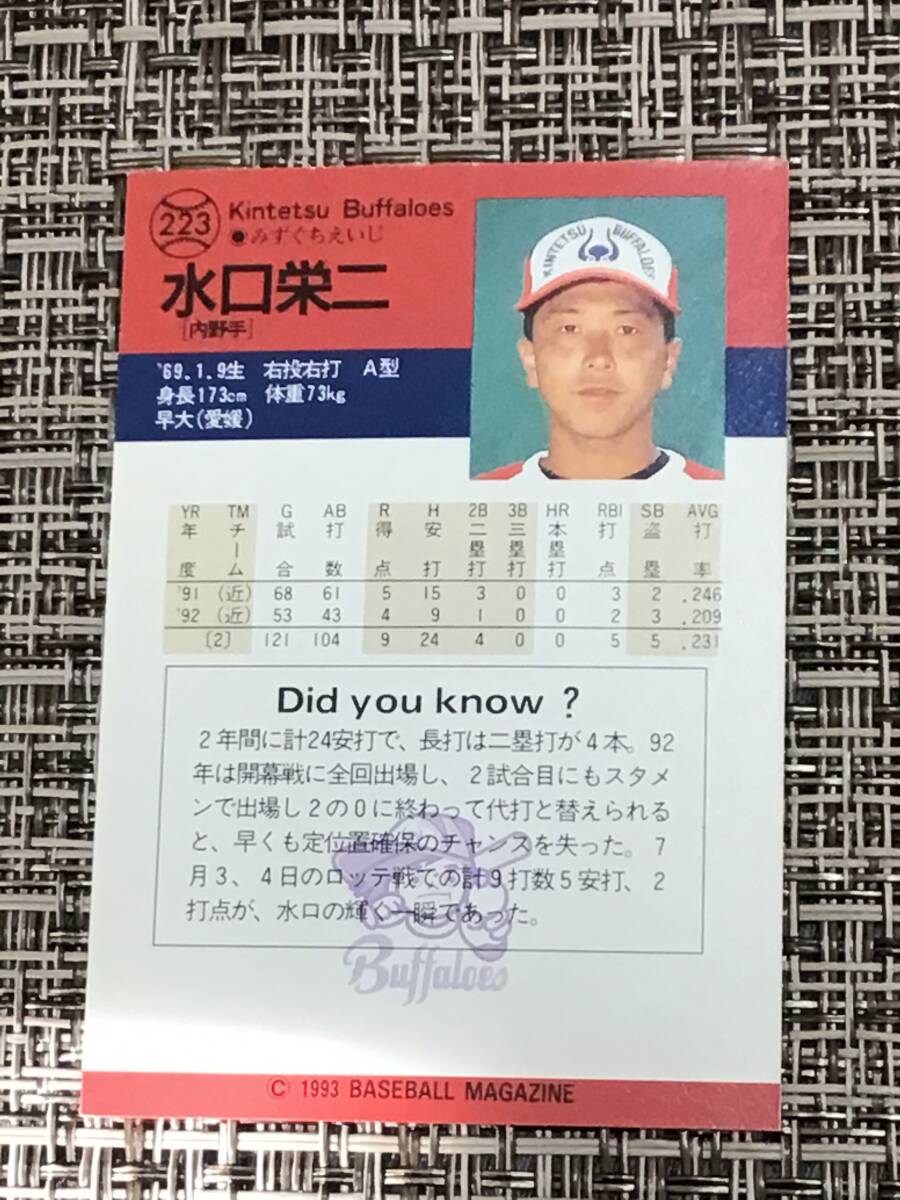 223
Kintetsu Buffaloes
●みずぐちえいじ
水口栄二
[内野手]
KINTETSU BUFFALOES
'69.1.9生 右投右打 A型
身長173cm 体重73kg
早大(愛媛)
YR TM G AB R H 2B 3B HR RBI SB AVG
年度 チーム 試合 打数 得点 安打 二塁打 三塁打 本塁打 打点 盗塁 打率
'91 (近) 68 61 5 15 3 0 0 3 2 .246
'92 (近) 53 43 4 9 1 0 0 2 3 .209
[2] 121 104 9 24 4 0 0 5 5 .231
Did you know ?
2年間に計24安打で、長打は二塁打が4本。92
年は開幕戦に全回出場し、2試合目にもスタメ
ンで出場し2の0に終わって代打と替えられる
と、早くも定位置確保のチャンスを失った。7
月3、4日のロッテ戦での計9打数5安打、2
打点が、水口の輝く一瞬であった。
Buffaloes
© 1993 BASEBALL MAGAZINE